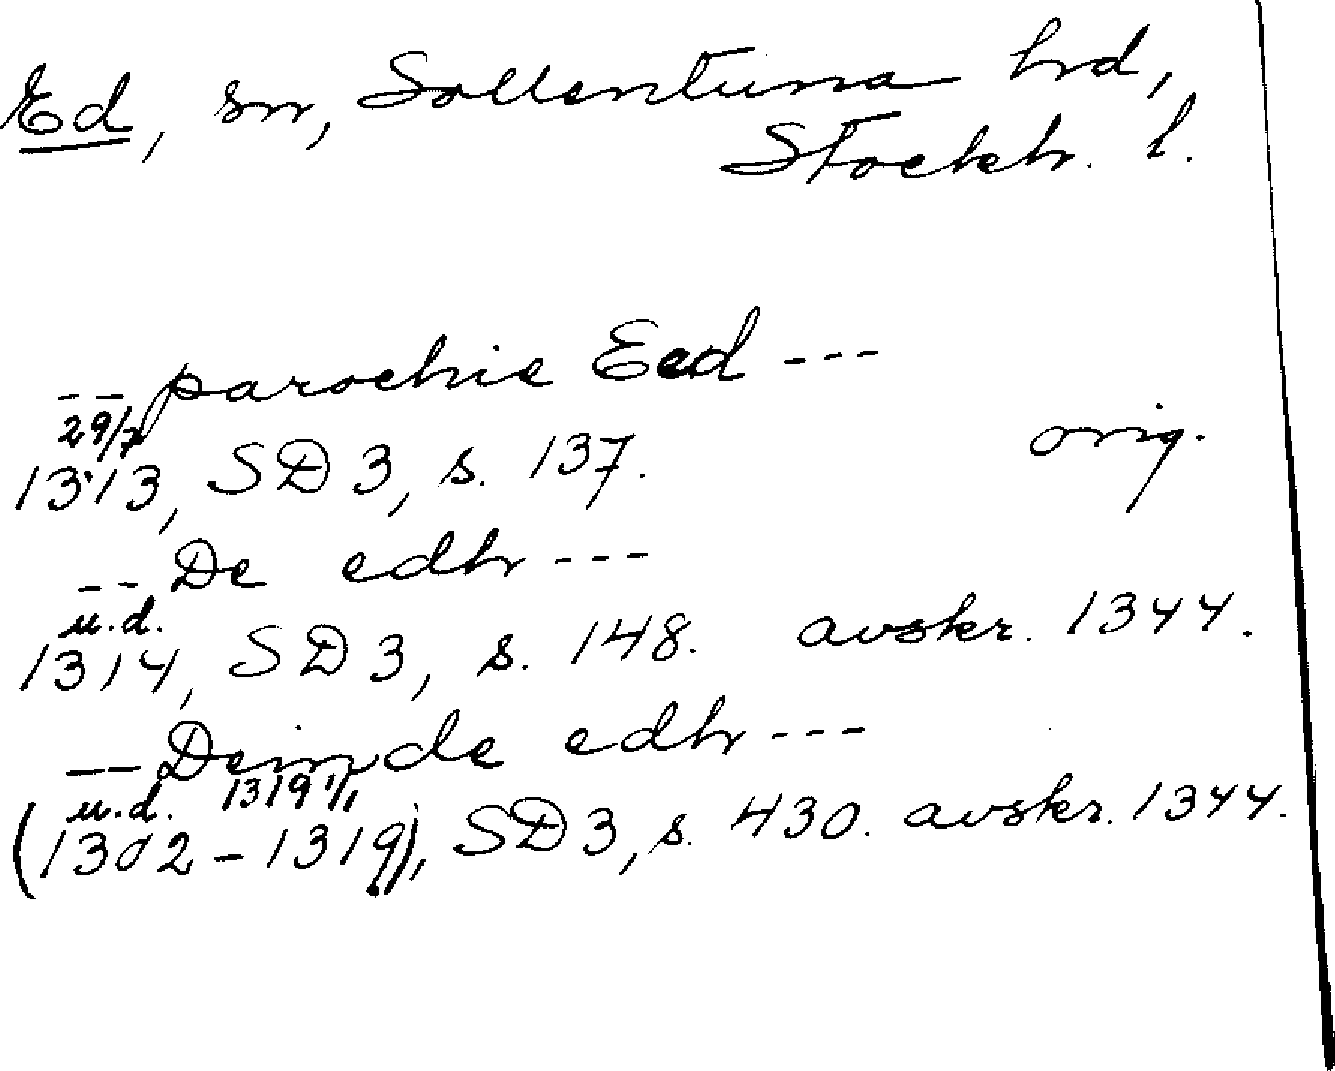 Ed, sn, Sollentuna hrd,
Stockh. l.
-- parochie Eed ---
29/7
1313, SD 3, s. 137. orig.
-- De edh ---
u.d.
1314, SD 3, s. 148. avskr. 1344.
-- Deinde edh ---
u.d. 1319 1/1
(1302-1319), SD 3, s. 430. avskr. 1344.